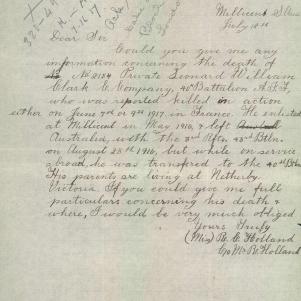 Millicent S. Aus
July 14th
Dear Sir
Could you give me any
information concerning the death of
No 2154 Private Leonard William
Clark C. Company, 40th Battalion A.I.F,
who was reported killed in action
either on June 7th or 9th 1917, in France. He enlisted
at Millicent in May 1916, & left
Australia, with the 3rd Rfts, 43rd Btln.
on August 28th 1916, but while on service
abroad, he was transferred to the 40th Btln.
His parents are living at Netherby.
Victoria. If you could give me full
particulars concerning his death &
where, I would be very much obliged
Yours Truly
(Miss) R. E. Holland
C/o Mr R Holland